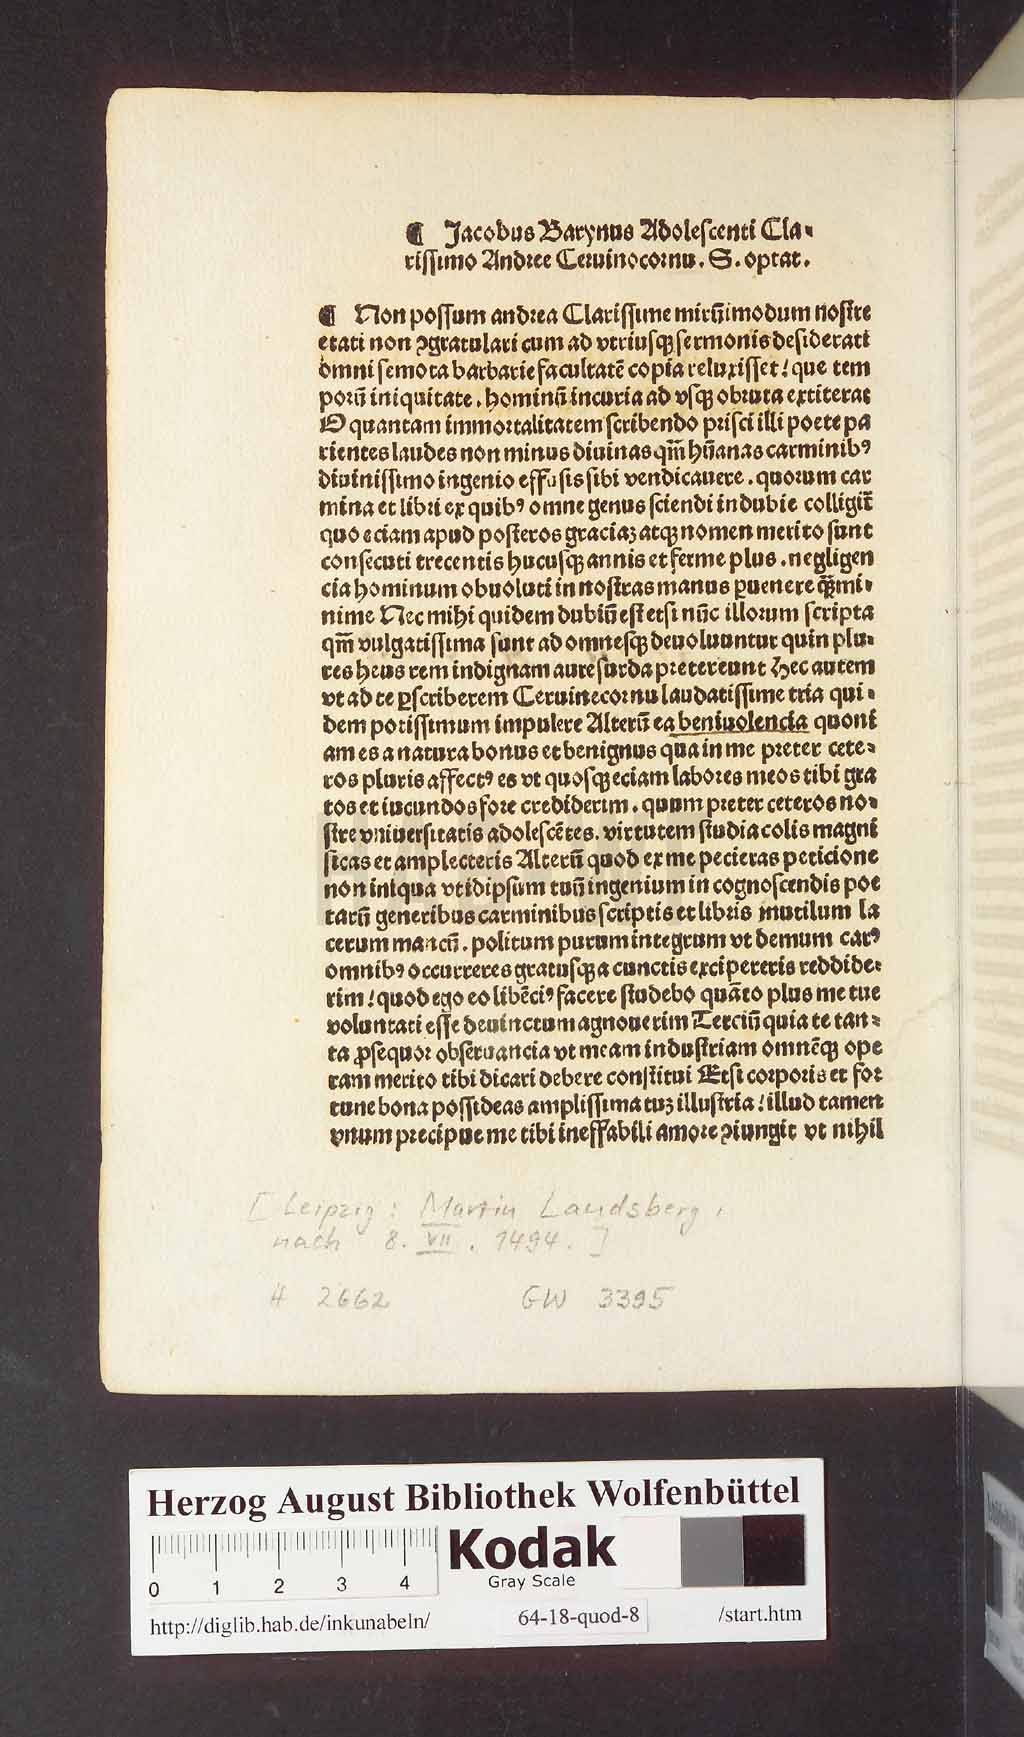 ¶ Jacobus Barynus Adolescenti Cla-
rissimo Andree Ceruinocornu. S. optat.
¶ Non possum andrea Clarissime mirũimodum nostre
etati non ꝯgratulari cum ad vtriusqꝫ sermonis desiderati
omni semota barbarie facultatē copia reluxisset: que tem
porũ iniquitate. hominũ incuria ad vsqꝫ obruta extiterat
O quantam immortalitatem scribendo prisci illi poete pa
rientes laudes non minus diuinas qm̃ hũanas carminibꝰ
diuinissimo ingenio effusis sibi vendicauere. quorum car
mina et libri ex quibꝰ omne genus sciendi indubie colligit̃
quo eciam apud posteros graciaꝫ atqꝫ nomen merito sunt
consecuti trecentis hucusqꝫ annis et ferme plus. negligen
cia hominum obuoluti in nostras manus ꝑuenere qꝫ̃mi-
nime Nec mihi quidem dubiũ est etsi nũc illorum scripta
qm̃ vulgatissima sunt ad omnesqꝫ deuoluuntur quin plu-
res heus rem indignam aure surda pretereunt Hec autem
vt ad te ꝑscriberem Ceruinecornu laudatissime tria qui-
dem potissimum impulere Alterũ ea beniuolencia quoni
am es a natura bonus et benignus qua in me preter cete-
ros pluris affectꝰ es vt quosqꝫ eciam labores meos tibi gra
tos et iucundos fore crediderim. quum preter ceteros no-
stre vniuersitatis adolescētes. virtutem studia colis magni
ficas et amplecteris Alterũ quod ex me pecieras peticione
non iniqua vt idipsum tuũ ingenium in cognoscendis poe
tarũ generibus carminibus scriptis et libris mutilum la
cerum mancũ. politum purum integrum vt demum carꝰ
omnibꝰ occurreres gratusqꝫ a cunctis excipereris reddide-
rim: quod ego eo libēciꝰ facere studebo quāto plus me tue
voluntati esse deuinctum agnouerim Terciũ quia te tan-
ta ꝓsequor obseruancia vt meam industriam omnēqꝫ ope
ram merito tibi dicari debere constitui Etsi corporis et for
tune bona possideas amplissima tuꝫ illustria: illud tamen
vnum precipue me tibi ineffabili amore ꝯiungit vt nihil
[Leipzig: Martin Landsberg,
nach 8. VII. 1494.]
H 2662 GW 3395
Herzog August Bibliothek Wolfenbüttel
0 1 2 3 4
Kodak
Gray Scale
http://diglib.hab.de/inkunabeln/ 64-18-quod-8 /start.htm